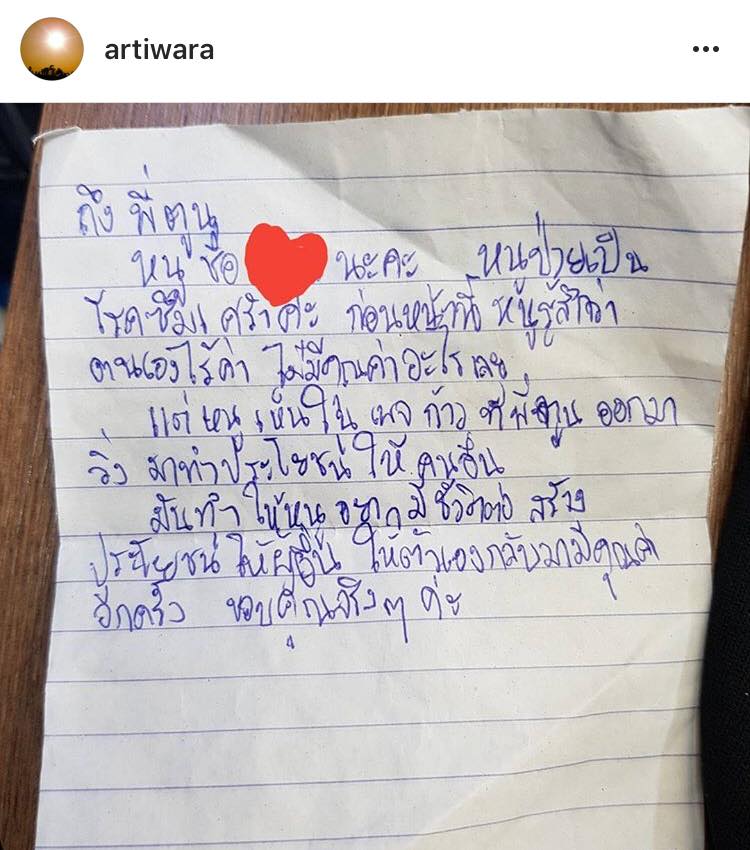 artiwara
ถึง พี่ตูน
หนู ชื่อ นะคะ หนูป่วยเป็น
โรคซึมเศร้าค่ะ ก่อนหน้านี้ หนูรู้สึกว่า
ตนเองไร้ค่า ไม่มีคุณค่าอะไรเลย
แต่หนูเห็นใน เพจ ก้าว ที่พี่ตูน ออกมา
วิ่ง มาทำประโยชน์ ให้ คนอื่น
มันทำ ให้หนู อยาก มี ชีวิตต่อ สร้าง
ประโยชน์ ให้ผู้อื่น ให้ตัวเองกลับมามีคุณค่า
อีกครั้ง ขอบคุณจริงๆ ค่ะ